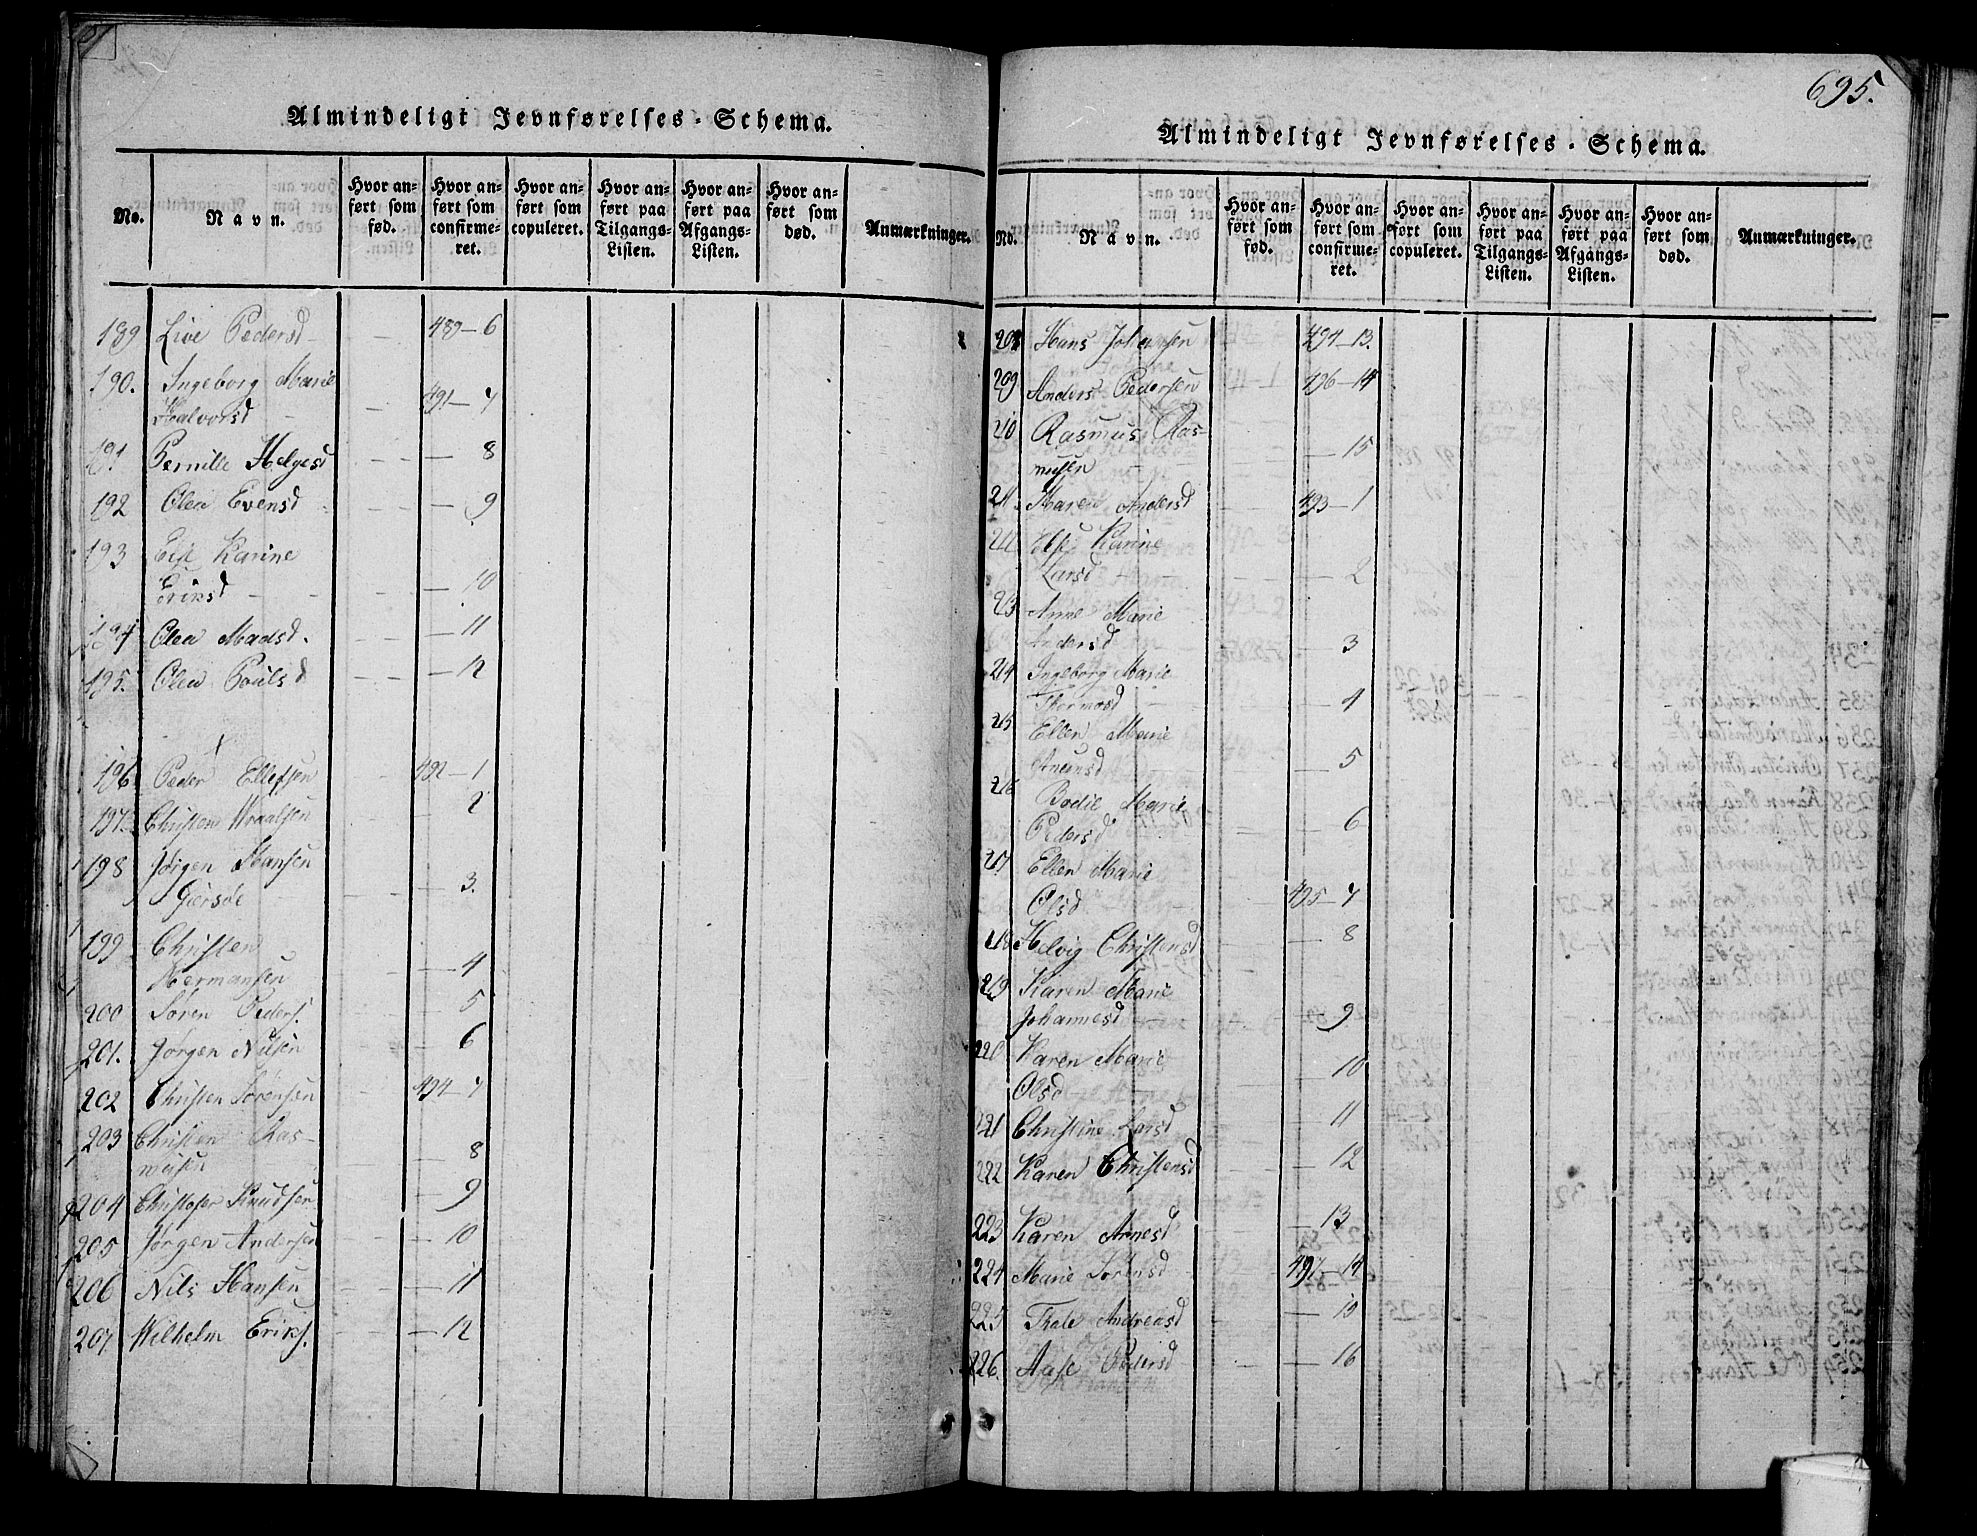 Almindeligt Jevnførelses-Schema.
No.
Navn.
Hvor an-
ført som
fød.
Hvor an-
ført som
confirme-
ret.
Hvor an-
ført som
copuleret.
Hvor an-
ført paa
Tilgangs-
Listen.
Hvor an-
ført paa
Afgangs-
Listen.
Hvor an-
ført som
død.
Anmærkninger.
189 Live Pedersd — 489—6
190. Ingeborg Marie
Halvorsd — — 491—7
191 Pernille Helgesd — — 8
192 Olea Evensd — — 9
193 Else Karine
Eriksd — — — 10
194 Olea Madsd. — — 11
195. Olea Poulsd — — 12
196 Peder Ellefsen — 492—1
197 Christen Wraalsen — 2
198 Jørgen Hansen
— — 3.
199 Christen
Hermansen — 4
200 Søren Peders. — 5
201. Jørgen Nilsen — 6
202 Christen Sørensen — 494—7
203 Christen Ras-
musen — — 8
204 Christofer Knudsen — 9
205 Jørgen Andersen — 10
206 Nils Hansen — — 11
207 Wilhelm Eriks. — — 12
695.
Almindeligt Jevnførelses-Schema.
No.
Navn.
Hvor an-
ført som
fød.
Hvor an-
ført som
confirme-
ret.
Hvor an-
ført som
copuleret.
Hvor an-
ført paa
Tilgangs-
Listen.
Hvor an-
ført paa
Afgangs-
Listen.
Hvor an-
ført som
død.
Anmærkninger.
208 Hans Johansen 494—13.
209 Anders Pedersen 496—14
210 Rasmus Ras-
musen — — 15
211 Maren Andersd — 493—1
212 Else Karine
Larsd — — 2
213 Anne Marie
Andersd — 3
214 Ingeborg Marie
— 4
215 Ellen Marie
— 5
216 Bodil Marie
Pedersd — — 6
217 Ellen Marie
Olsd — 495—7
218 Helvig Christensd — 8
219 Karen Marie
Johannesd — — 9
220 Karen Marie
Olsd — 10
221 Christine Larsd — 11
222 Karen Christensd — 12
223 Karen Arnesd — 13
224 Marie Sørensd — 497—14
225 Thale Andreasd — 15
226. Aase Pedersd — — 16